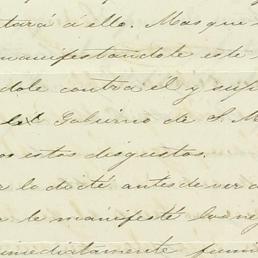 tará á ello. Mas que
manifestandote este
dole contra él y sup
el Gobierno de S. M
os estos disgustos.
lo dicté antes de ver a
le manifesté
inmediatamente